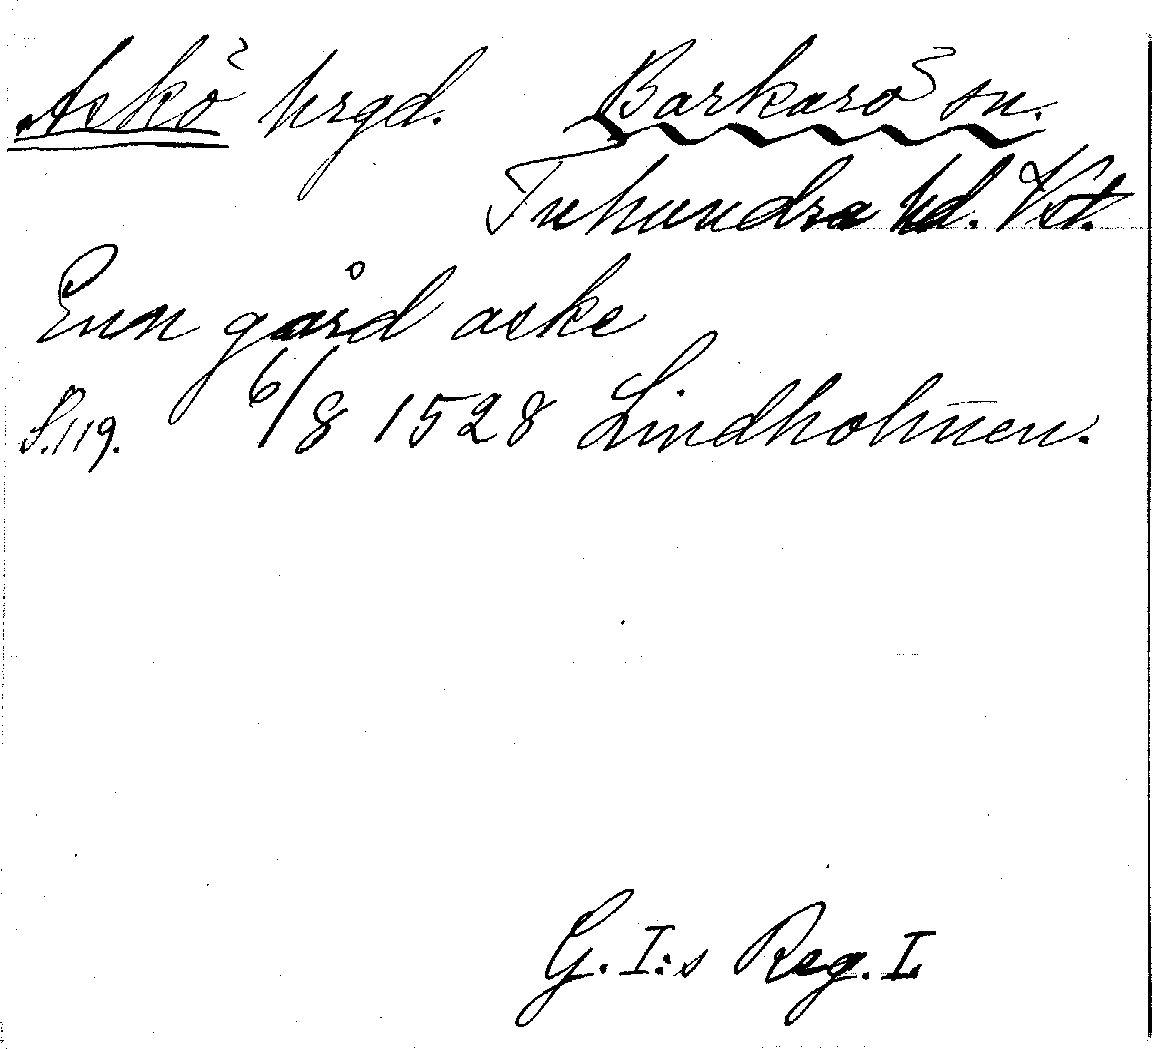 Askö hrgd. Barkarö sn.
Tuhundra hd. Vst.
Enn gård aske
S. 119. 6/8 1528 Lindholmen.
G. I:s Reg. I